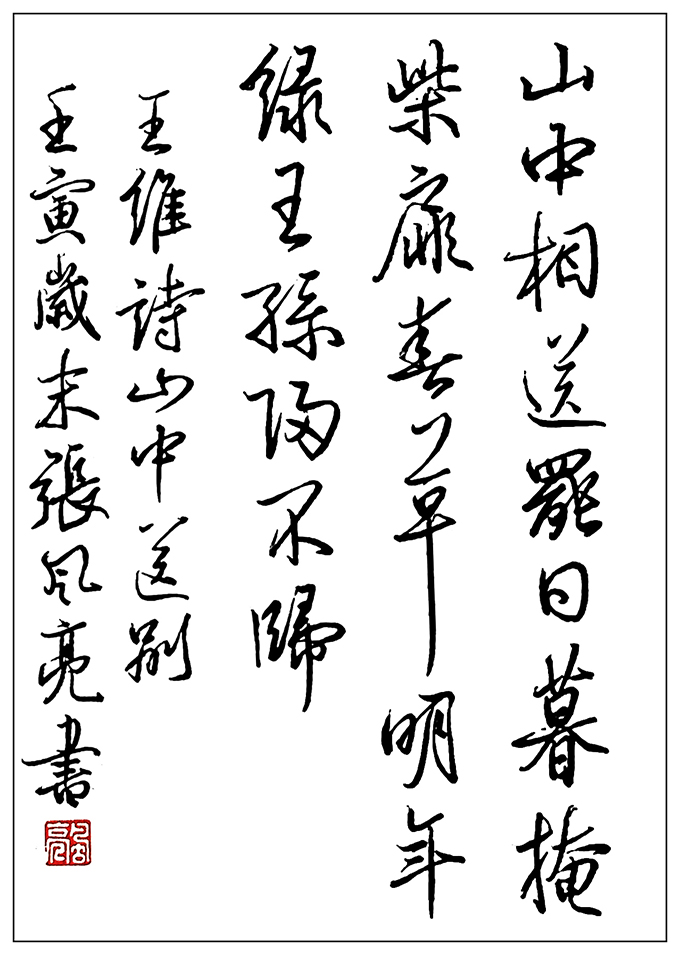 山中相送罷日暮掩
柴扉春草明年
绿王孫歸不歸
王維詩山中送别
壬寅歲末張风亮書